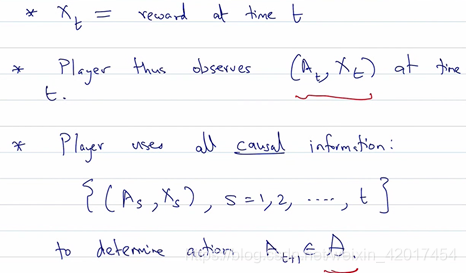 * X_t = reward at time t
* Player thus observes (A_t, X_t) at time
t.
* Player uses all causal information:
{(A_s, X_s), s = 1, 2, ...., t}
to determine action A_{t+1} ∈ A.
https://blog.csdn.net/weixin_42017454